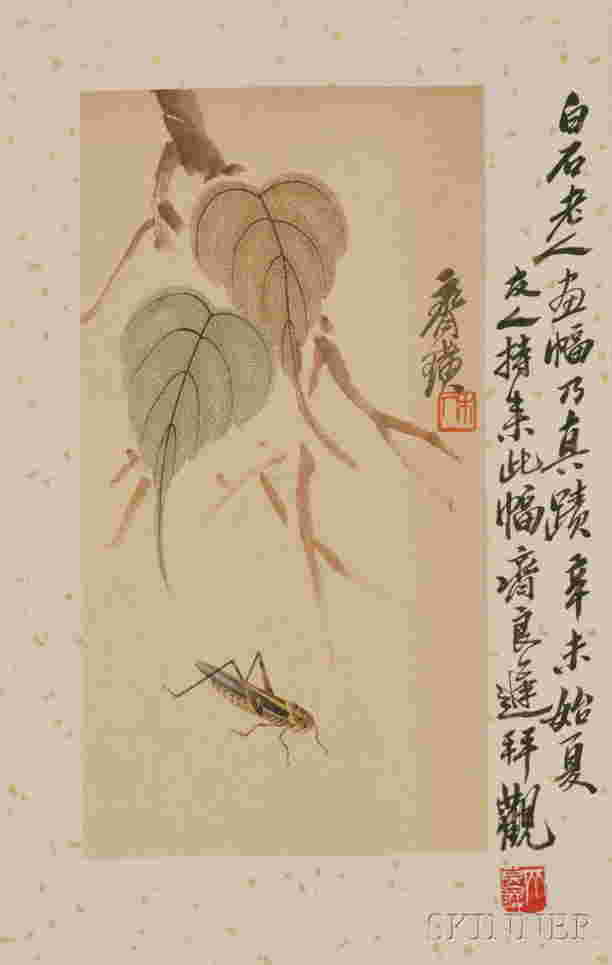 白石老人画幅乃真蹟辛未始夏
友人持来此幅齊良遲拜觀
齊璜
SKINNER